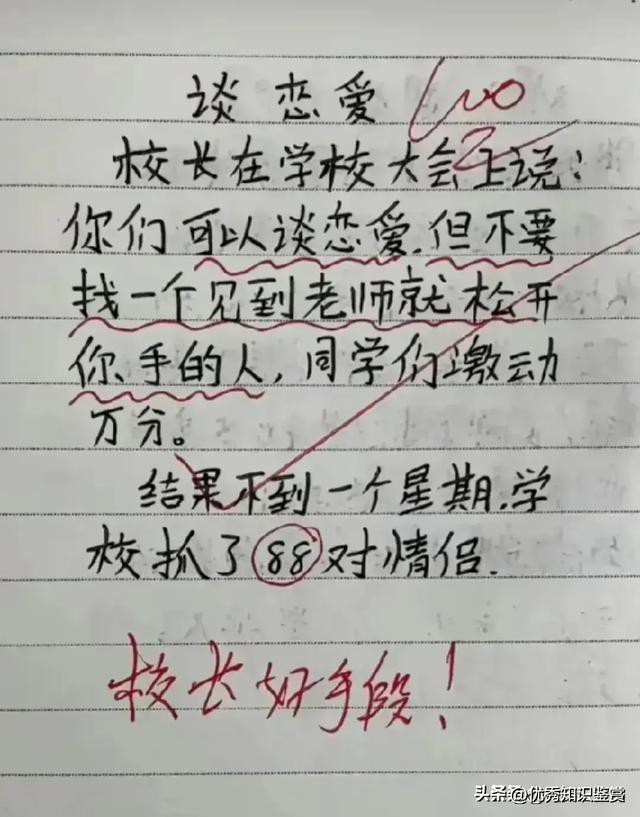 谈恋爱
100
校长在学校大会上说:
你们可以谈恋爱,但不要
找一个见到老师就松开
你手的人,同学们激动
万分。
结果不到一个星期,学
校抓了88对情侣.
校长好手段!
头条@优秀知识鉴赏